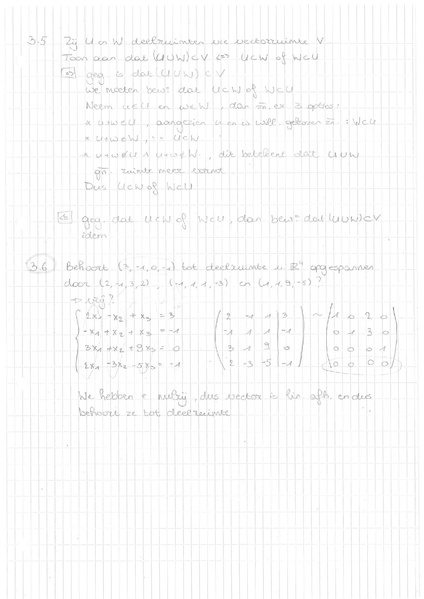 3.5 Zij U en W deelruimten ve vectorruimte V
Toon aan dat (U∪W)⊂V ⇔ U⊂W of W⊂U
⇒ geg. is dat (U∪W)⊂V
We moeten bew. dat U⊂W of W⊂U
Neem u∈U en w∈W, dan ex. 3 opties:
* u+w∈U, aangezien u en w will. gekozen : W⊂U
* u+w∈W, -- U⊂W
* u+w∉U ∧ u+w∉W, dit betekent dat U∪W
gn. ruimte meer vormt
Dus U⊂W of W⊂U
⇐ geg. dat U⊂W of W⊂U, dan bew. dat (U∪W)⊂V
idem
3.6 Behoort (3,-1,0,-1) tot deelruimte v. ℝ⁴ opgespannen
door (2,-1,3,2), (-1,1,1,-3) en (1,1,9,-5)?
2x₁ -x₂ + x₃ = 3
-x₁ +x₂ + x₃ = -1
3x₁ +x₂ +9x₃ = 0
2x₁ -3x₂ -5x₃ = -1
2 -1 1 | 3 ~ 1 0 2 0
-1 1 1 | -1 0 1 3 0
3 1 9 | 0 0 0 0 1
2 -3 -5 | -1 0 0 0 0
We hebben e nulrij, dus vector is lin. afh. en dus
behoort ze tot deelruimte